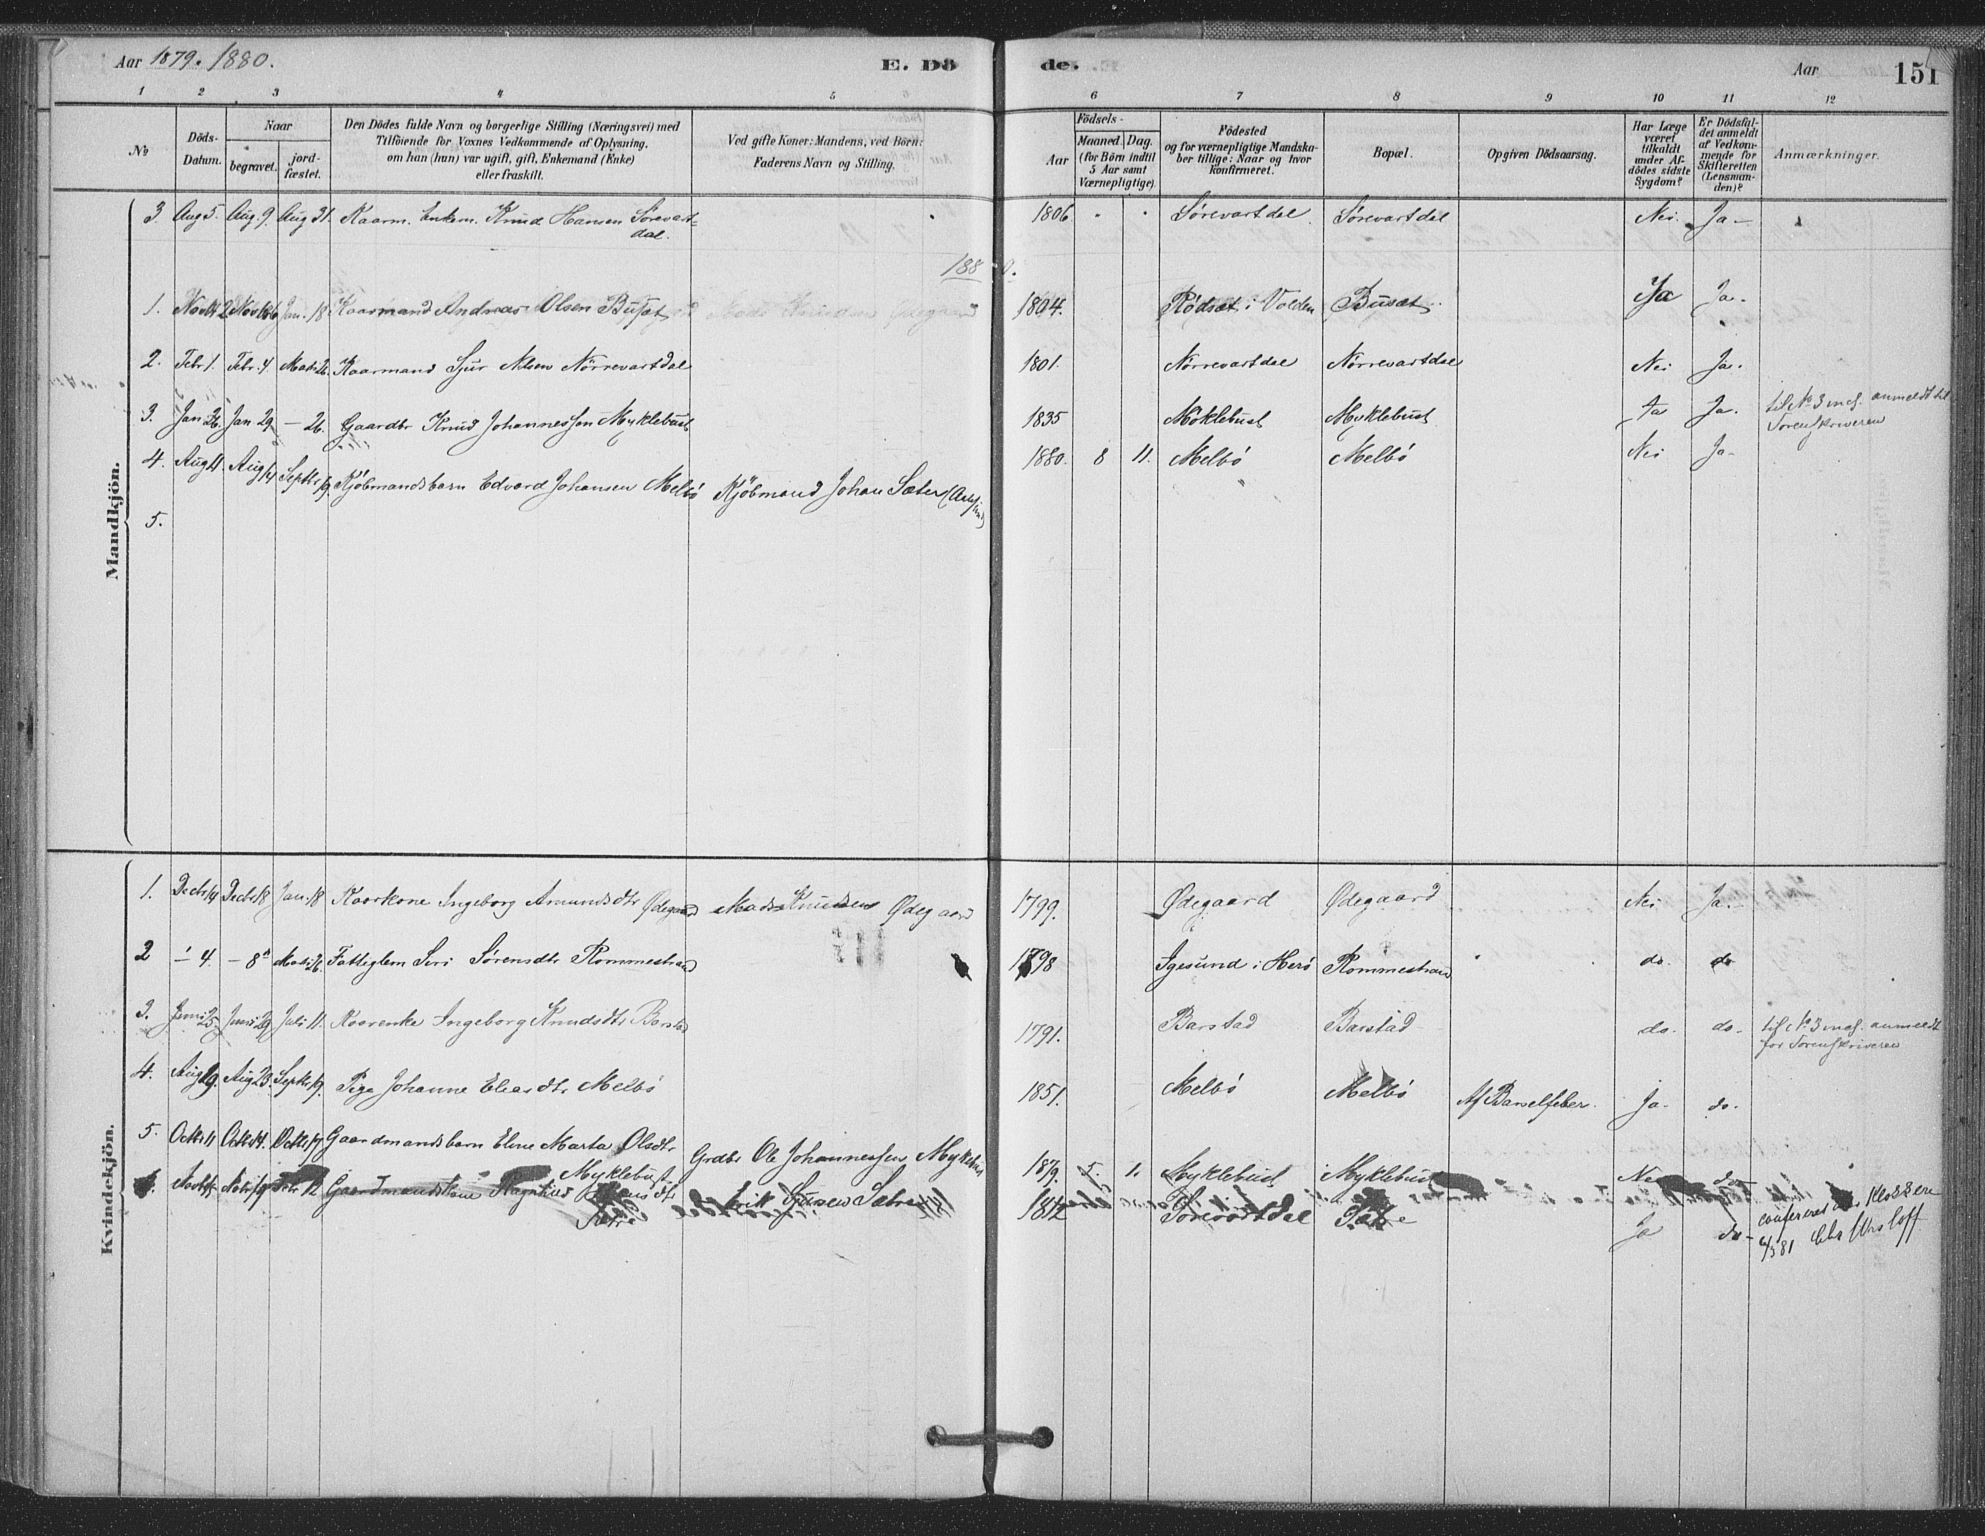 Aar 1879. 1880.
E. Dö
de.
Aar
151
1 2 3 4 5 6 7 8 9 10 11 12
No
Döds-
Datum.
Naar
begravet.
jord-
fæstet.
Den Dödes fulde Navn og borgerlige Stilling (Næringsvei) med
Tilföiende for Voxnes Vedkommende af Oplysning,
om han (hun) var ugift, gift, Enkemand (Enke)
eller fraskilt.
Ved gifte Koner: Mandens, ved Börn:
Faderens Navn og Stilling.
Födsels-
Aar
Maaned. Dag.
(for Börn indtil
5 Aar samt
Værnepligtige)
Födested
og for værnepligtige Mandska-
ber tillige: Naar og hvor
konfirmeret.
Bopæl.
Opgiven Dödsaarsag.
Har Læge
været
tilkaldt
under Af-
dödes sidste
Sygdom?
Er Dödsfal-
det anmeldt
af Vedkom-
mende for
Skifteretten
(Lensman-
den)?
Anmærkninger.
Mandkjön.
3. Aug 5. Aug 9. Aug 31. Kaarm. Enkem. Knud Hansen Sørevart-
dal. 1806 Sørevartdal Sørevartdal Nei. Ja
1880.
1. Jan. 18 Kaarmand Andreas Olsen Busæt 1804. Rødsæt i Volden Busæt Ja Ja.
2. Febr 1. Febr. 4. 26. Kaarmand Sjur Nilsen Nörrevartdal 1801. Nørrevartdal Nørrevartdal Nei Ja.
3. Jan 26. Jan 29 — 26. Gaardbr Knud Johannessen Myklebust 1835 Möklebust Myklebust Ja Ja. til No 3 mcf. anmeldt til
Sorenskriveren
4. Aug 11. Aug 14 Septbr 19. Kjöbmandsbarn Edvard Johansen Melbö Kjöbmand Johan Sæter 1880. 8 11. Melbö Melbö Nei Ja
5.
Kvindekjön.
1. Decbr 14 Decbr 18 Jan. 18 Kaarkone Ingeborg Amundsdtr Ødegaard Mads Knudsen Ødegaard 1799. Ødegaard Ødegaard Nei Ja.
2 — 4. — 8 26. Fattiglem Siri Sørensdtr Rommestrand 1798 Igesund i Herö Rommestrand do. do
3. Juni 25. Juni 29 Juli 11. Kaarenke Ingeborg Knudsdtr Barstad 1791. Barstad Barstad do. do. til No 3 mcf. anmeldt
for Sorenskriveren
4. Aug 19. Aug 23. Septbr 19. Pige Johanne Eleasdtr Melbö 1851. Melbö Melbö Af Barselfeber. Ja. do.
5. Octbr 11 Octbr 14. Octbr 17 Gaardmandsbarn Elene Marta Olsdtr
Myklebust Grdbr Ole Johannessen Myklebust 1879. 5. 1. Myklebust Myklebust Nei do
Gaardmandskone
Sætre Erik Sjursen Sætre 1812 Sörevartdal Sætre Ja do